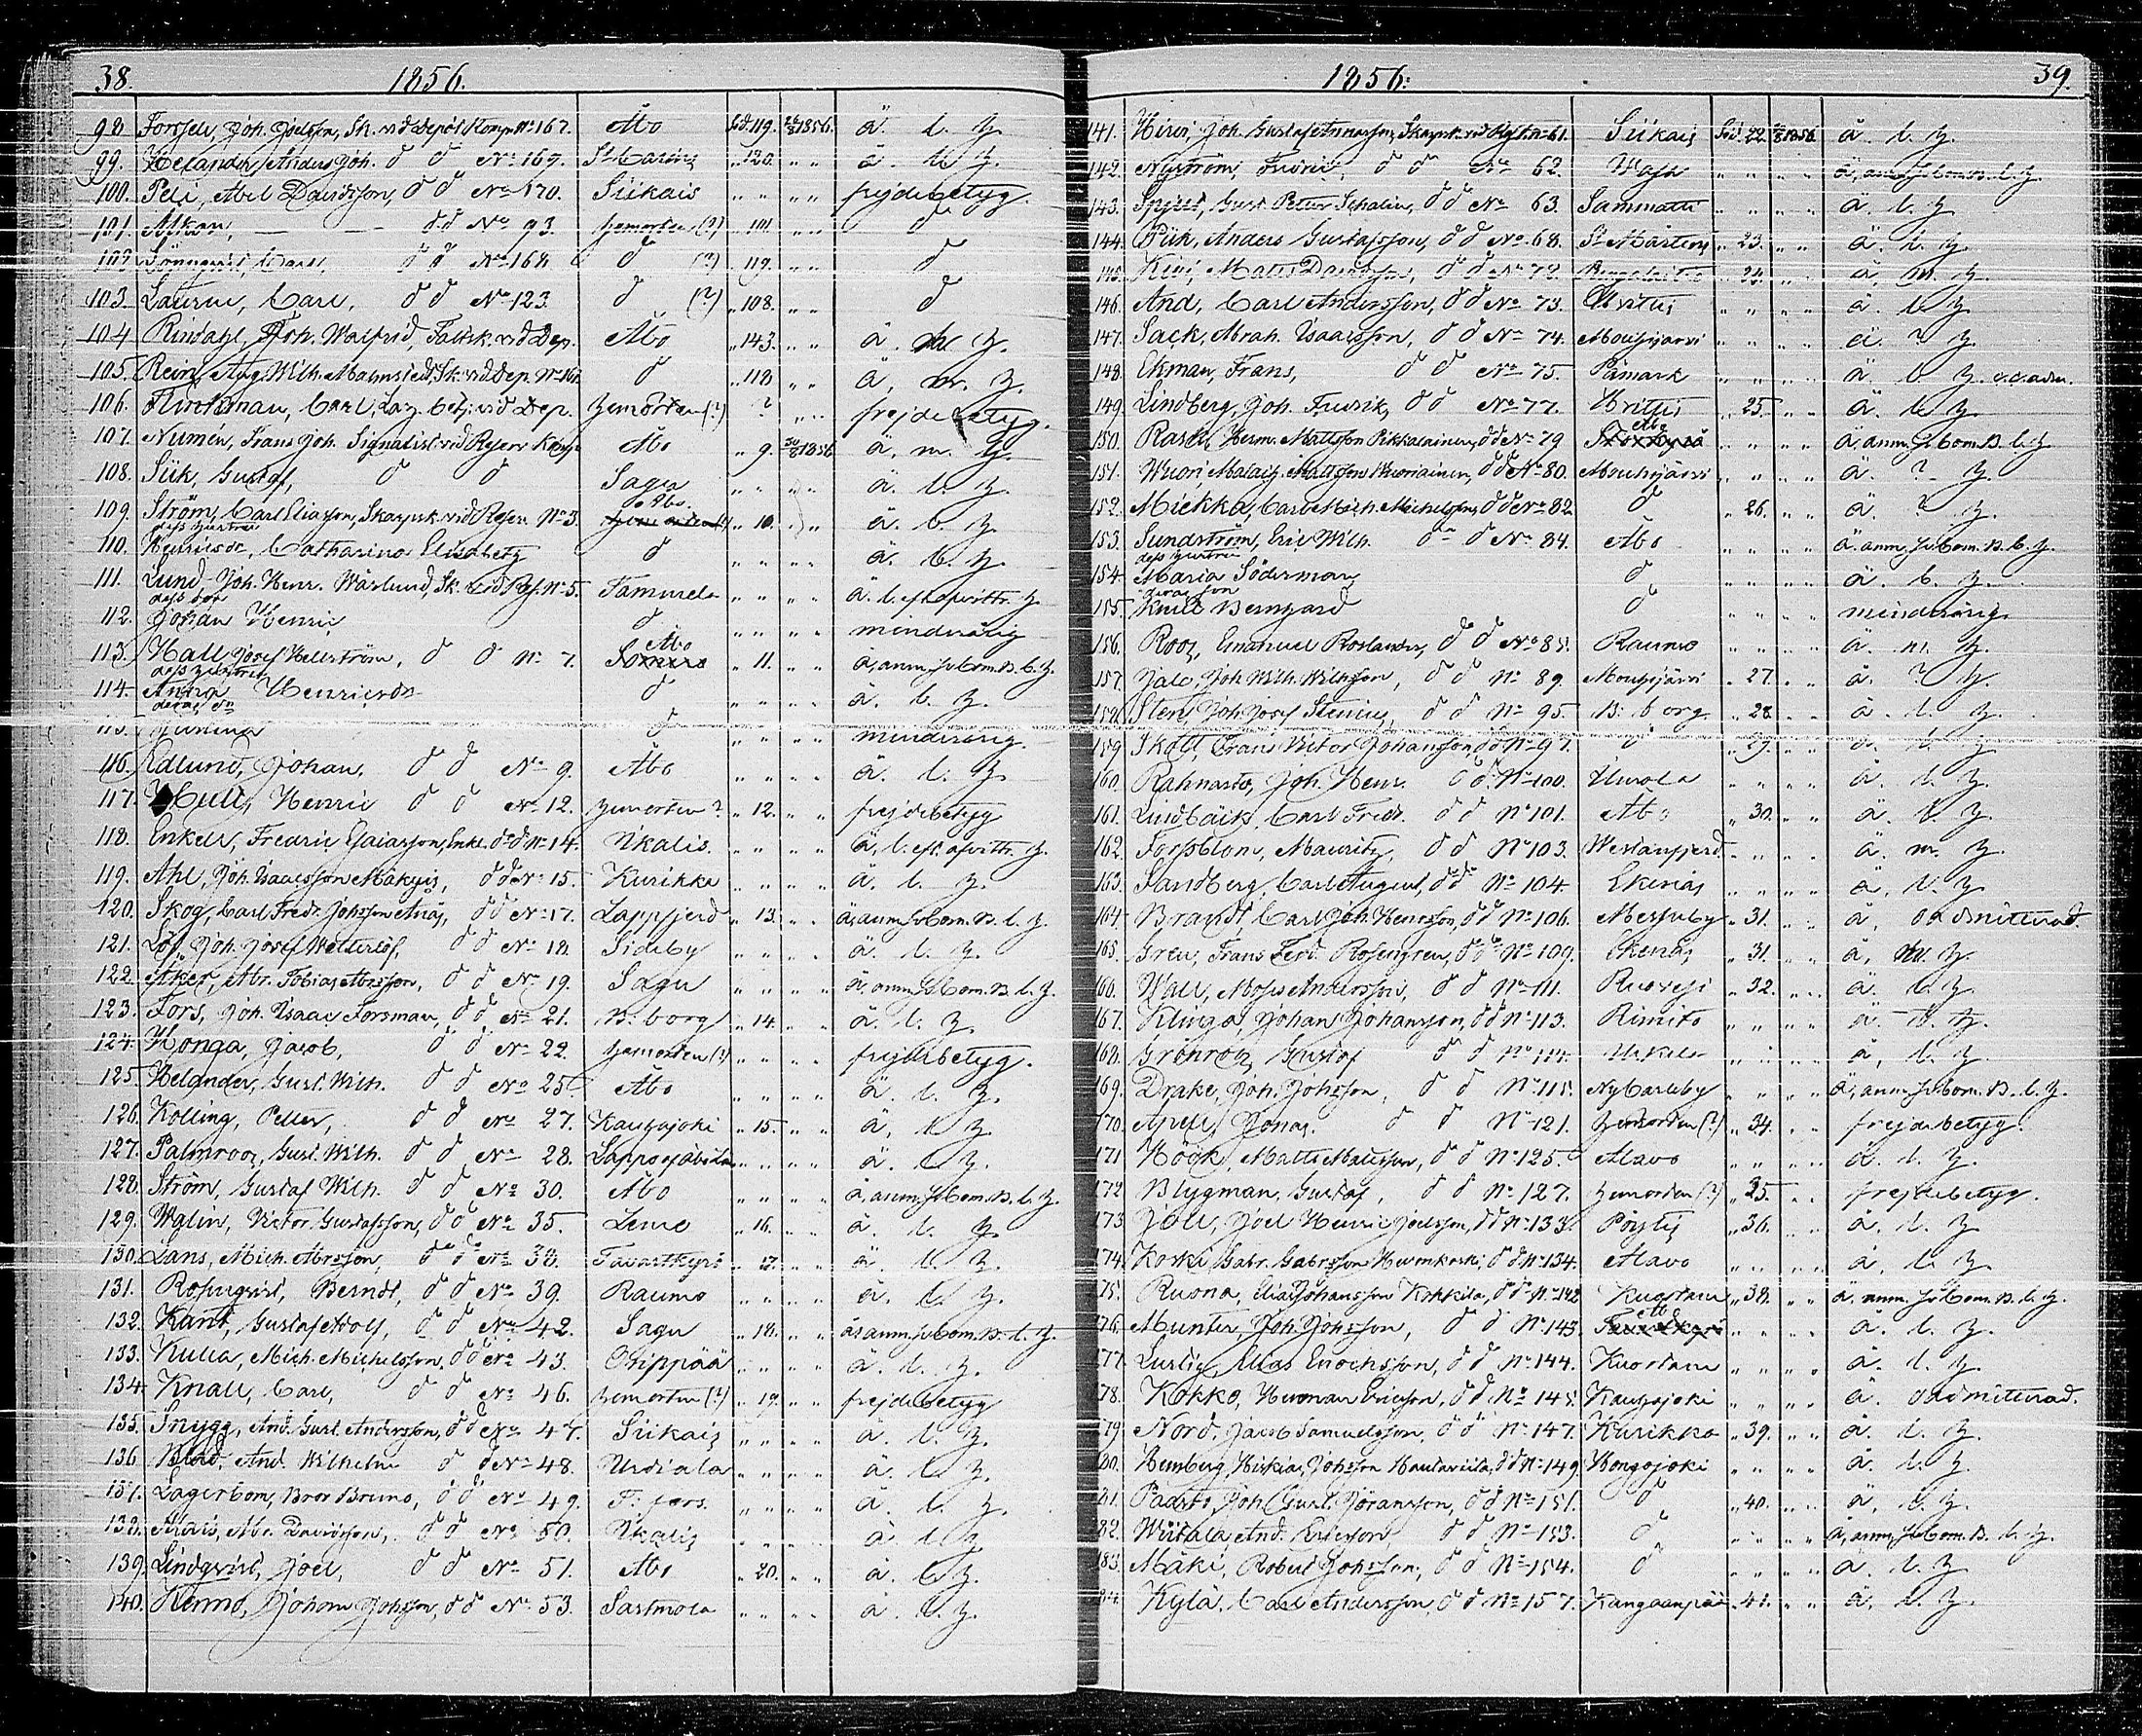 38. 1856.
98 Forssell, Joh. Joelsson, Sk. vid Depôt Komp. No 167. Åbo Sid. 119. 1856. ä. l. h.
99. Helander, Anders Joh. d d No 169. St Carins " 120. " " ä. l. h.
100. Peli, Abel Davidsson, d d No 170. Siikais " " " " frejdebetyg.
101. Alkon, — — d d No 93. hemorten (?) " 101. " " d
102 Lönnqvist, Carl, d d No 168 d (?) " 119. " " d
103. Laurin, Carl, d d No 123. d (?) " 108. " " d
104 Rindahl, Joh. Walfrid, Fältsk. vid Dep. Åbo " 143. " " ä. m. h.
105. Rein, Aug. Wilh. Malmstedt, Sk. vid Dep. No 161. d " 118 " " ä. m. h.
106. Flinkman, Carl, Laz. betj. vid Dep. hemorten (?) " ? " " frejdebetyg.
107. Numén, Frans Joh. Signalist vid Reserv Komp. Åbo " 9. 1856 ä. m. h.
108. Siik, Gustaf, d d Sagu " " " " ä. l. h.
109. Ström, Carl Eliasson, Skarpsk. vid Reserv. No 3. Åbo " 10. " " ä. b. h.
dess hustru
110. Henricsdr, Catharina Elisabeth d " " " " ä. b. h.
111. Lund, Joh. Henr. Wärlund, Sk. vid Res. No 5. Tammela " " " " ä. l. h.
dess son
112. Johan Henric d " " " " minderårig
113. Hall, Josef Hellström, d d No 7. Åbo " 11. " " ä, anm. till Com. B. l. h.
dess hustru
114. Anna Henricsdr d " " " " ä. l. h.
deras dr
115. d " " " " minderårig.
116. Edlund, Johan, d d No 9. Åbo " " " " ä. l. h.
117. Henric d d No 12. hemorten ? " 12. " " frejdebetyg
118. Enkell, Fredric Esaiasson, Enkl. d d No 14. Ikalis. " " " " ä, l. h.
119. Ahl, Joh. Isaacsson d d No 15. Kurikka " " " " ä. l. h.
120. Skog, Carl Fredr. Johsson d d No 17. Lappfjerd " 13. " " ä, anm. till Com. B. l. h.
121. Löf, Joh. Josef Wetterlöf, d d No 18. Sideby " " " " ä. l. h.
122. Åker, Abr. Tobias Abrsson, d d No 19. Sagu " " " " ä. anm. till Com. B. l. h.
123. Fors, Joh. Isaac Forsman, d d No 21. B:borg " 14. " " ä. l. h.
124. Honga, Jacob, d d No 22. hemorten (?) " " " " frejdebetyg.
125. Helander, Gust. Wilh. d d No 25. Åbo " " " " ä. l. h.
126. Kolling, Petter, d d No 27. Kauhajoki " 15. " " ä. l. h.
127. Palmroos, Gust. Wilh. d d No 28. " " " " ä. l. h.
128. Ström, Gustaf Wilh. d d No 30. Åbo " " " " ä, anm. till Com. B. l. h.
129. Walin, Victor Gustafsson, d d No 35. Lemo " 16. " " ä. l. h.
130. Lans, Mich. Abrsson, d d No 38. Tavastkyrö " 17. " " ä. l. h.
131. Rosenqvist, Berndt, d d No 39. Raumo " " " " ä. l. h.
132. Kant, Gustaf Adolf, d d No 42. Sagu " 18. " " ä, anm. till Com. B. l. h.
133. Kulla, Mich. Michelsson, d d No 43. Oripää " " " " ä. l. h.
134. Knall, Carl, d d No 46. hemorten (?) " 19. " " frejdebetyg
135. Snygg, And. Gust. Andersson, d d No 47. Siikais " " " " ä. l. h.
136. Blad, And. Wilhelm d d No 48. Urdiala " " " " ä. l. h.
137. Lagerbom, Bror Bruno, d d No 49. T:fors. " " " " ä. l. h.
138. Abr. Davidsson, d d No 50. Ikalis " " " " ä. l. h.
139. Lindqvist, Joel, d d No 51. Åbo " 20. " " ä. l. h.
140. Johan Johsson, d d No 53. Sastmola " " " " ä. l. h.
1856: 39.
141. Joh. Gustaf Skarpsk. vid No 61. Siikais Sid. 22. 1856 ä. l. h.
142. Nyström, Fredric, d d No 62. Wasa " " " " ä, anm. till Com. B. l. h.
143. Gust. Petter Schalin, d d No 63. Sammatti " " " " ä. l. h.
144. Piik, Anders Gustafsson, d d No 68. St Mårtens " 23. " " ä. l. h.
145. Kivi, Matts Davidsson, d d No 72. " 24. " " ä. m. h.
146. And, Carl Andersson, d d No 73. Hvittis " " " " ä. l. h.
147. Sack, Abrah. Isaacsson, d d No 74. Mouhijärvi " " " " ä. ? h.
148. Ekman, Frans, d d No 75. Påmark " " " " ä. l. h.
149. Lindberg, Joh. Fredrik, d d No 77. Hvittis " 25. " " ä. l. h.
150. Rask, Herm. Mattsson Pikkarainen, d d No 79 Åbo " " " " ä. anm. till Com. B. l. h.
151. Wuori, Malach. Mattsson Wuoriainen, d d No 80. Mouhijärvi " " " " ä. ? h.
152. Miekka, Carl Mich. Michelsson, d d No 82 d " 26. " " ä. ? h.
153. Sundström, Eric Wilh. d d No 84. Åbo " " " " ä. anm. till Com. B. l. h.
dess hustru
154. Maria Söderman d " " " " ä. b. h.
deras son
155. Knut Bernhard d " " " " minderårig
156. Roos, Emanuel Roslander, d d No 85. Raumo " " " " ä. m. h.
157. Joh. Wilh. Wilhsson, d d No 89. Mouhijärvi " 27. " " ä. ? h.
158. Sten, Joh. Josef Stenius, d d No 95. B:borg " 28. " " ä. l. h.
159. Sköld, Frans Victor Johansson, d d No 97. d " 29. " " ä. l. h.
160. Rahnasto, Joh. Henr. d d No 100. " " " " ä. l. h.
161. Lindbäck, Carl Fredr. d d No 101. Åbo " 30. " " ä. l. h.
162. Forsblom, Mauritz, d d No 103. Westanfjerd " " " " ä. m. h.
163. Sandberg, Carl August, d d No 104. Ekenäs " " " " ä, l. h.
164. Brandt, Carl Joh. Henrsson, d d No 106. Messuby " 31. " " ä, oadmitterad.
165. Gren, Frans Ferd. Rosengren, d d No 109. Ekenäs " 31. " " ä, m. h.
166. Wall, Moses Andersson, d d No 111. Ruovesi " 32. " " ä. l. h.
167. Klinga, Johan Johansson, d d No 113. Rimito " " " " ä. l. h.
168. Grönroos, Gustaf d d No 114. " " " " ä, l. h.
169. Drake, Joh. Johsson, d d No 115. NyCarleby " " " " ä, anm. till Com. B. l. h.
170. Apell, Jonas. d d No 121. hemorten (?) " 34. " " frejdebetyg.
171 Höök, Matts Mattsson, d d No 125. Alavo " " " " ä. l. h.
172 Blygman, Gustaf, d d No 127. hemorten (?) " 35. " " frejdebetyg.
173 Joel Henric Joelsson, d d No 133. Pöytis " 36. " " ä. l. h.
174. Koski, Gabr. Gabrsson d d No 134. Alavo " " " " ä. l. h.
175. Ruona, Elias Johansson Kokkila, d d No 142 Kuortane " 38. " " ä. anm. till Com. B. l. h.
176. Munter, Joh. Johsson, d d No 143. Åbo " " " " ä. l. h.
177. Lustig, Elias Enochsson, d d No 144. Kuortane " " " " ä. l. h.
178. Kokko, Herman Ericsson, d d No 145. Kauhajoki " " " " ä. oadmitterad.
179 Nord, Jacob Samuelsson, d d No 147. Kurikka " 39. " " ä. l. h.
180. Hemberg, Hiskias Johsson d d No 149. Hongojoki " " " " ä. l. h.
181. Paasto, Joh. Gust. Göransson, d d No 151. d " 40. " " ä, l. h.
182. Wiitala, And. Ericsson, d d No 153. d " " " " ä, anm. till Com. B. l. h.
183. Mäki, Robert Johsson, d d No 154. d " " " " ä. l. h.
184. Kylä, Carl Andersson, d d No 157. Kangaanpää " 41. " " ä. l. h.